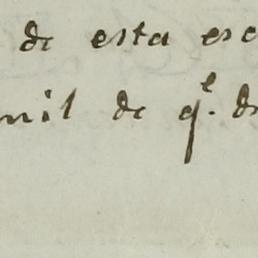 de esta esc
mil de q.e de